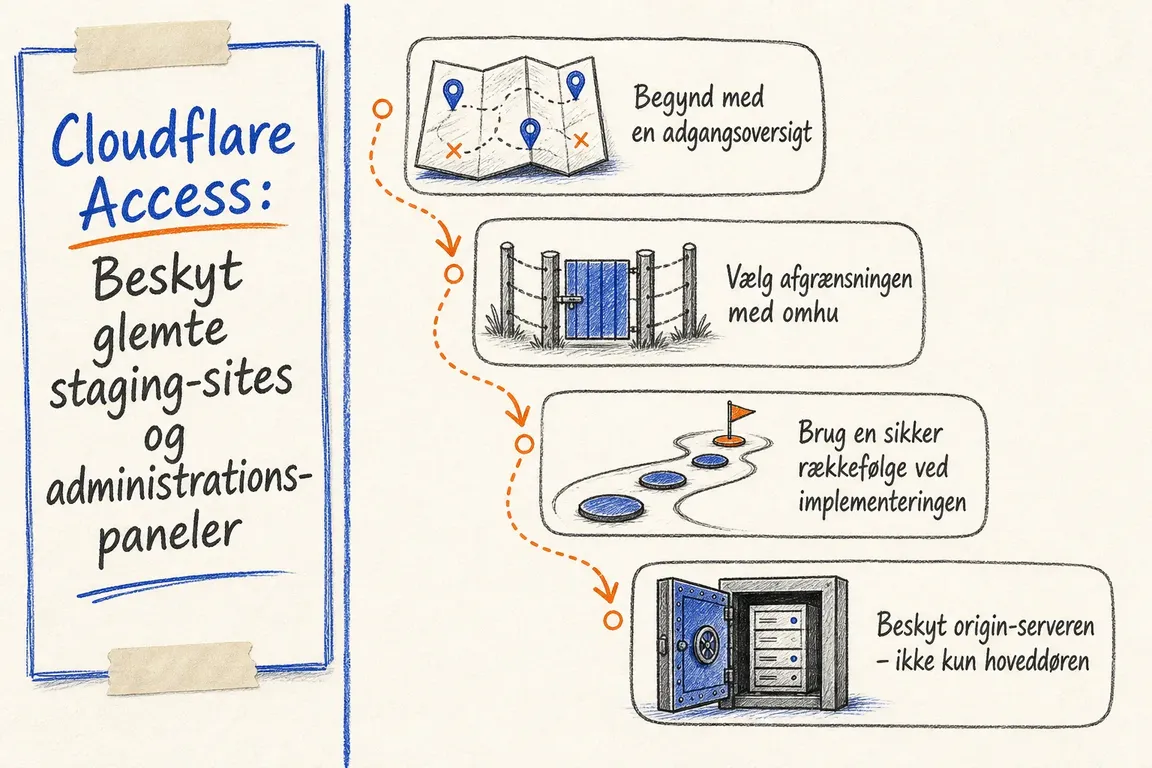 Cloudflare
Access:
Beskyt
glemte
staging-sites
og
administrations-
paneler
Begynd med
en adgangsoversigt
Vælg afgrænsningen
med omhu
Brug en sikker
rækkefølge ved
implementeringen
Beskyt origin-serveren
– ikke kun hoveddøren